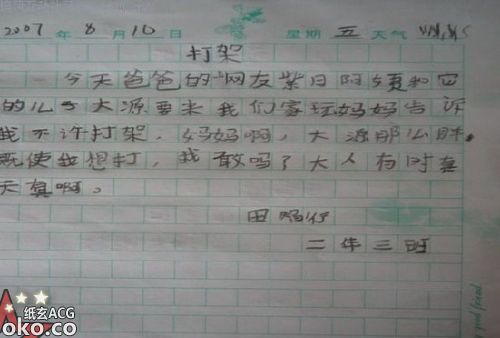 2007 年 8 月 10 日 星期 五 天气
打架
今天爸爸的网友紫日阿姨和它
的儿子大源要来我们家玩妈妈告诉
我不许打架。妈妈啊，大源那么胖，
既使我想打，我敢吗？大人有时真
天真啊。
田
二年三班
good friend
纸玄ACG
oko.co